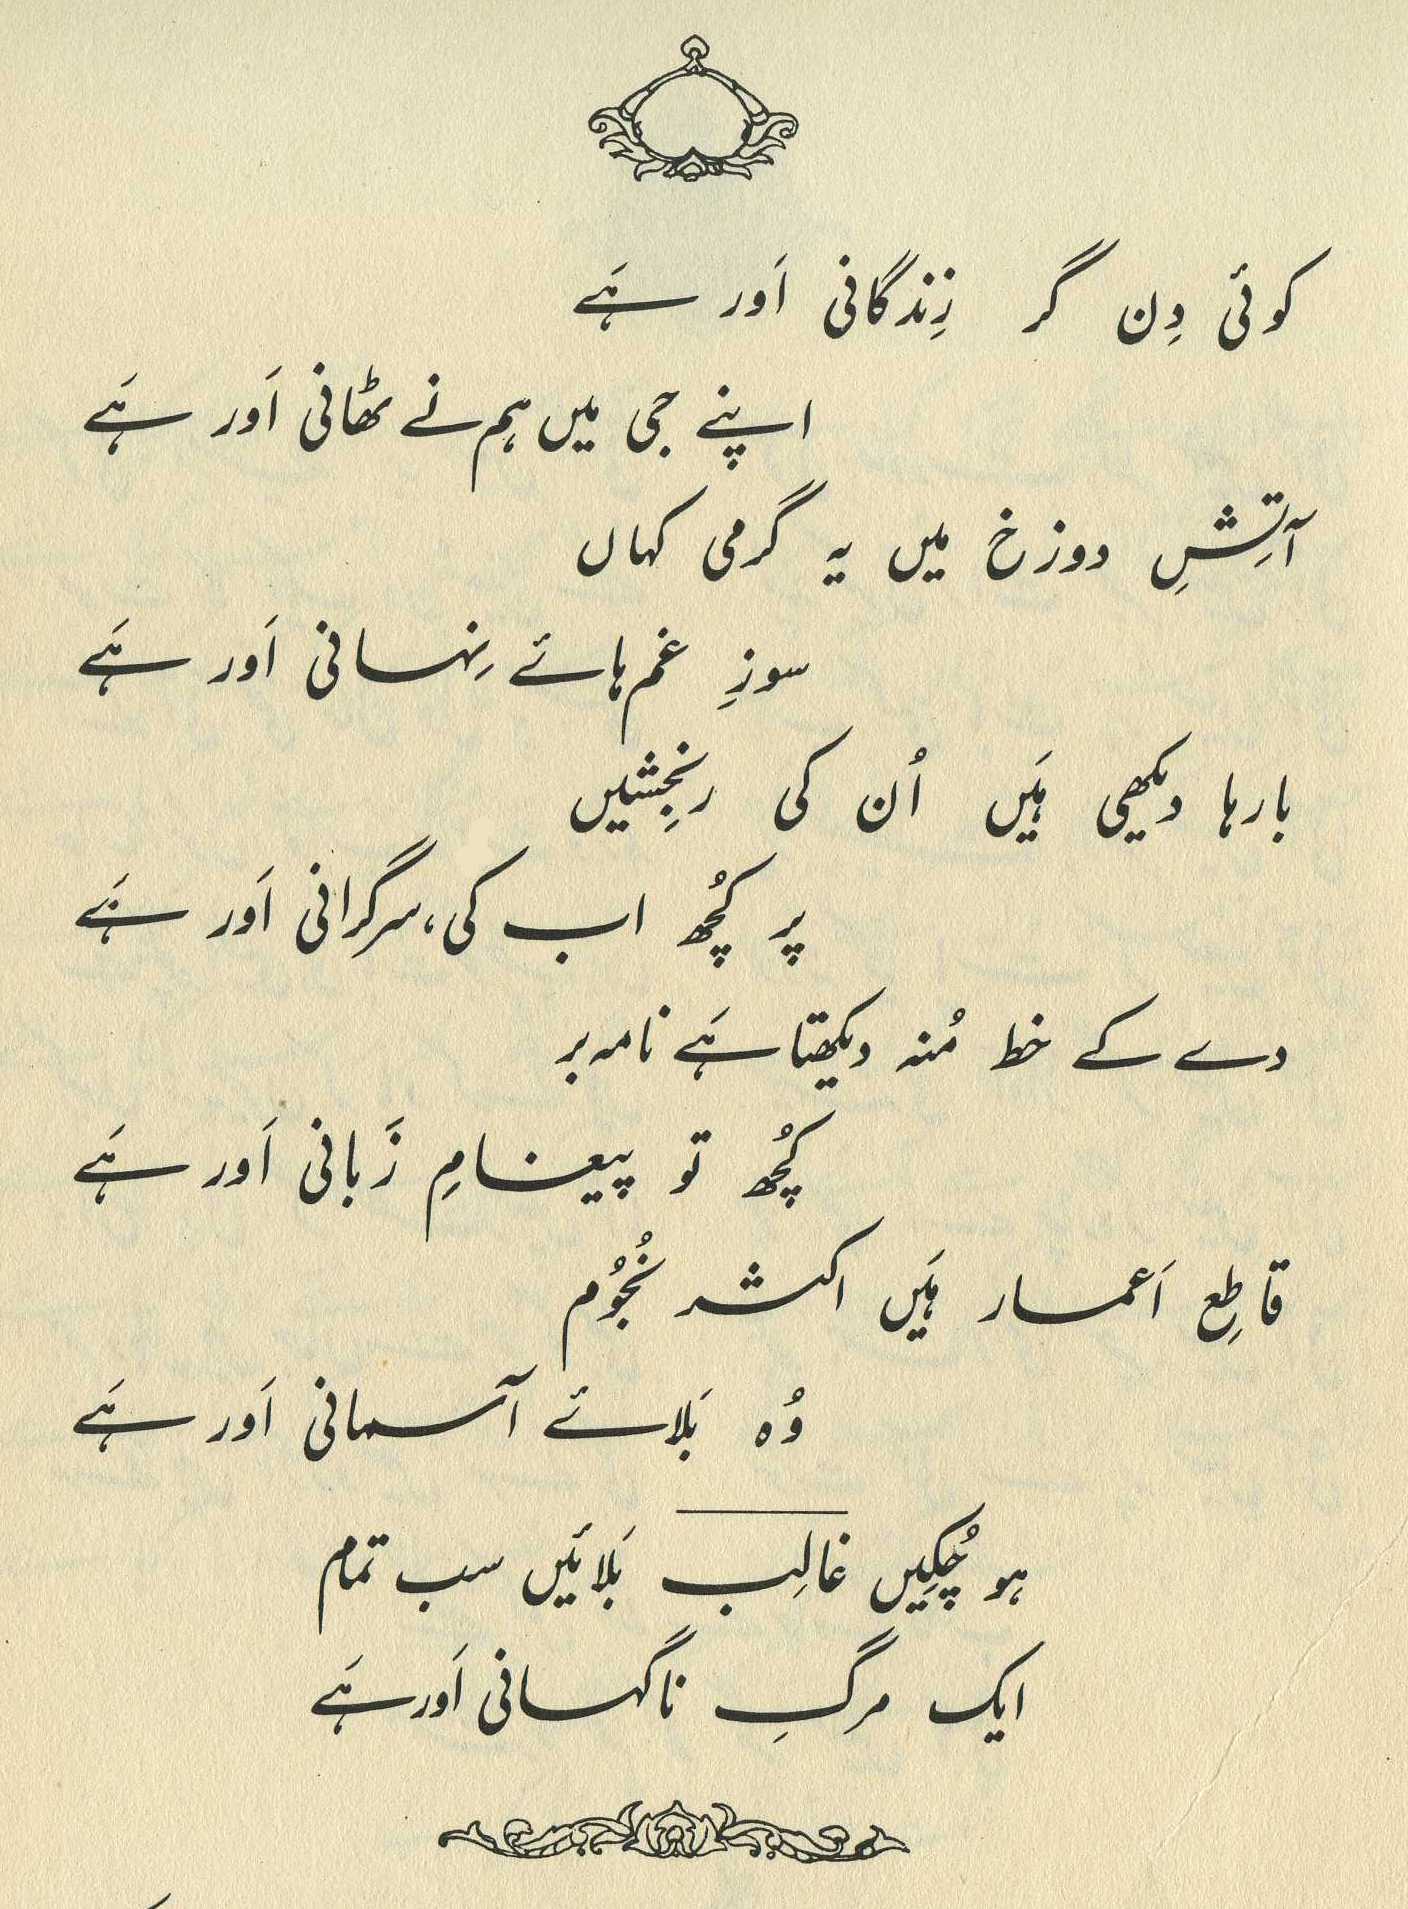 کوئی دِن گر زِندگانی اَور ہَے
اپنے جی میں ہم نے ٹھانی اَور ہَے
آتِشِ دوزخ میں یہ گرمی کہاں
سوزِ غم ہائے نِہانی اَور ہَے
بارہا دیکھی ہَیں اُن کی رنجِشیں
پر کُچھ اب کی، سرگرانی اَور ہَے
دے کے خط مُنہ دیکھتا ہَے نامہ بر
کُچھ تو پیغامِ زَبانی اَور ہَے
قاطِعِ اَعمار ہَیں اکثر نُجُوُم
وُہ بَلائے آسمانی اَور ہَے
ہو چُکِیں غالِب بَلائیں سب تمام
ایک مرگِ ناگہانی اَور ہَے